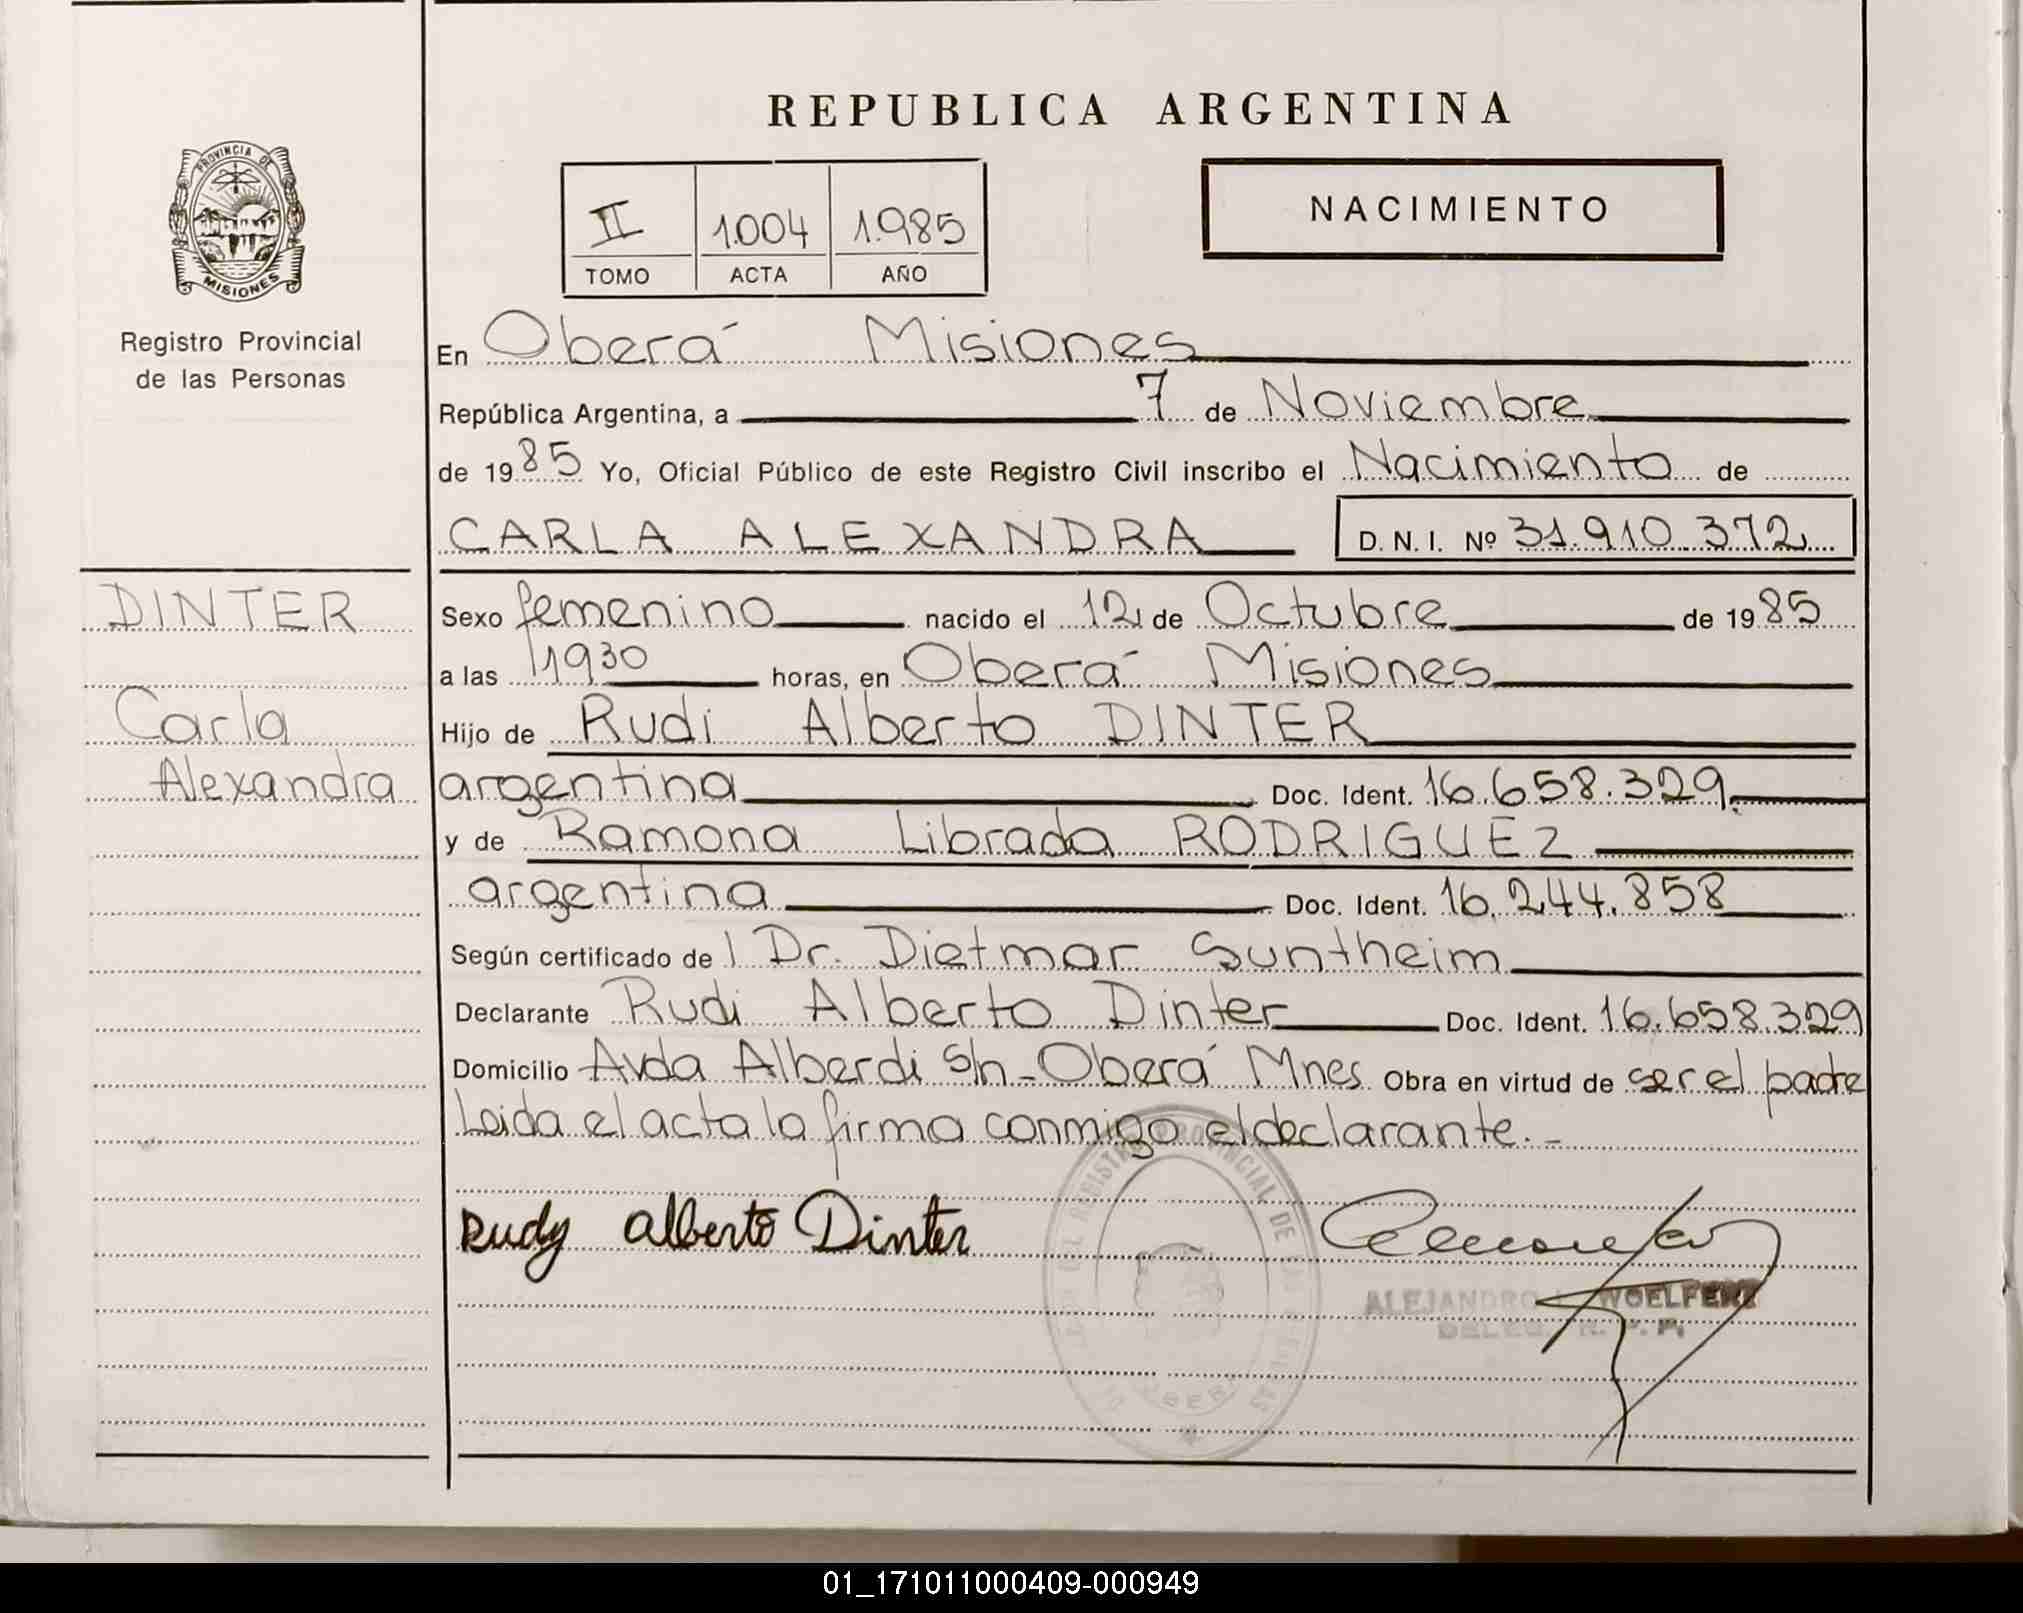 REPUBLICA ARGENTINA
PROVINCIA DE
MISIONES
Registro Provincial
de las Personas
II 1004 1.985
TOMO ACTA AÑO
NACIMIENTO
En Oberá Misiones
República Argentina, a 7 de Noviembre
de 1985 Yo, Oficial Público de este Registro Civil inscribo el Nacimiento de
CARLA ALEXANDRA D. N. I. Nº 31.910.372
DINTER
Carla
Alexandra
Sexo femenino nacido el 12 de Octubre de 1985
a las 19³⁰ horas, en Oberá Misiones
Hijo de Rudi Alberto DINTER
argentina Doc. Ident. 16.658.329.
y de Ramona Librada RODRIGUEZ
argentina Doc. Ident. 16.244.858
Según certificado de l Dr. Dietmar Suntheim
Declarante Rudi Alberto Dinter Doc. Ident. 16.658.329
Domicilio Avda Alberdi s/n - Oberá Mnes Obra en virtud de ser el padre
Leida el acta la firma conmigo el declarante. -
Rudy Alberto Dinter
REGISTRO PROVINCIAL DE LAS
ALEJANDRO WOELFERT
DELEG. R. P. P.
01_171011000409-000949